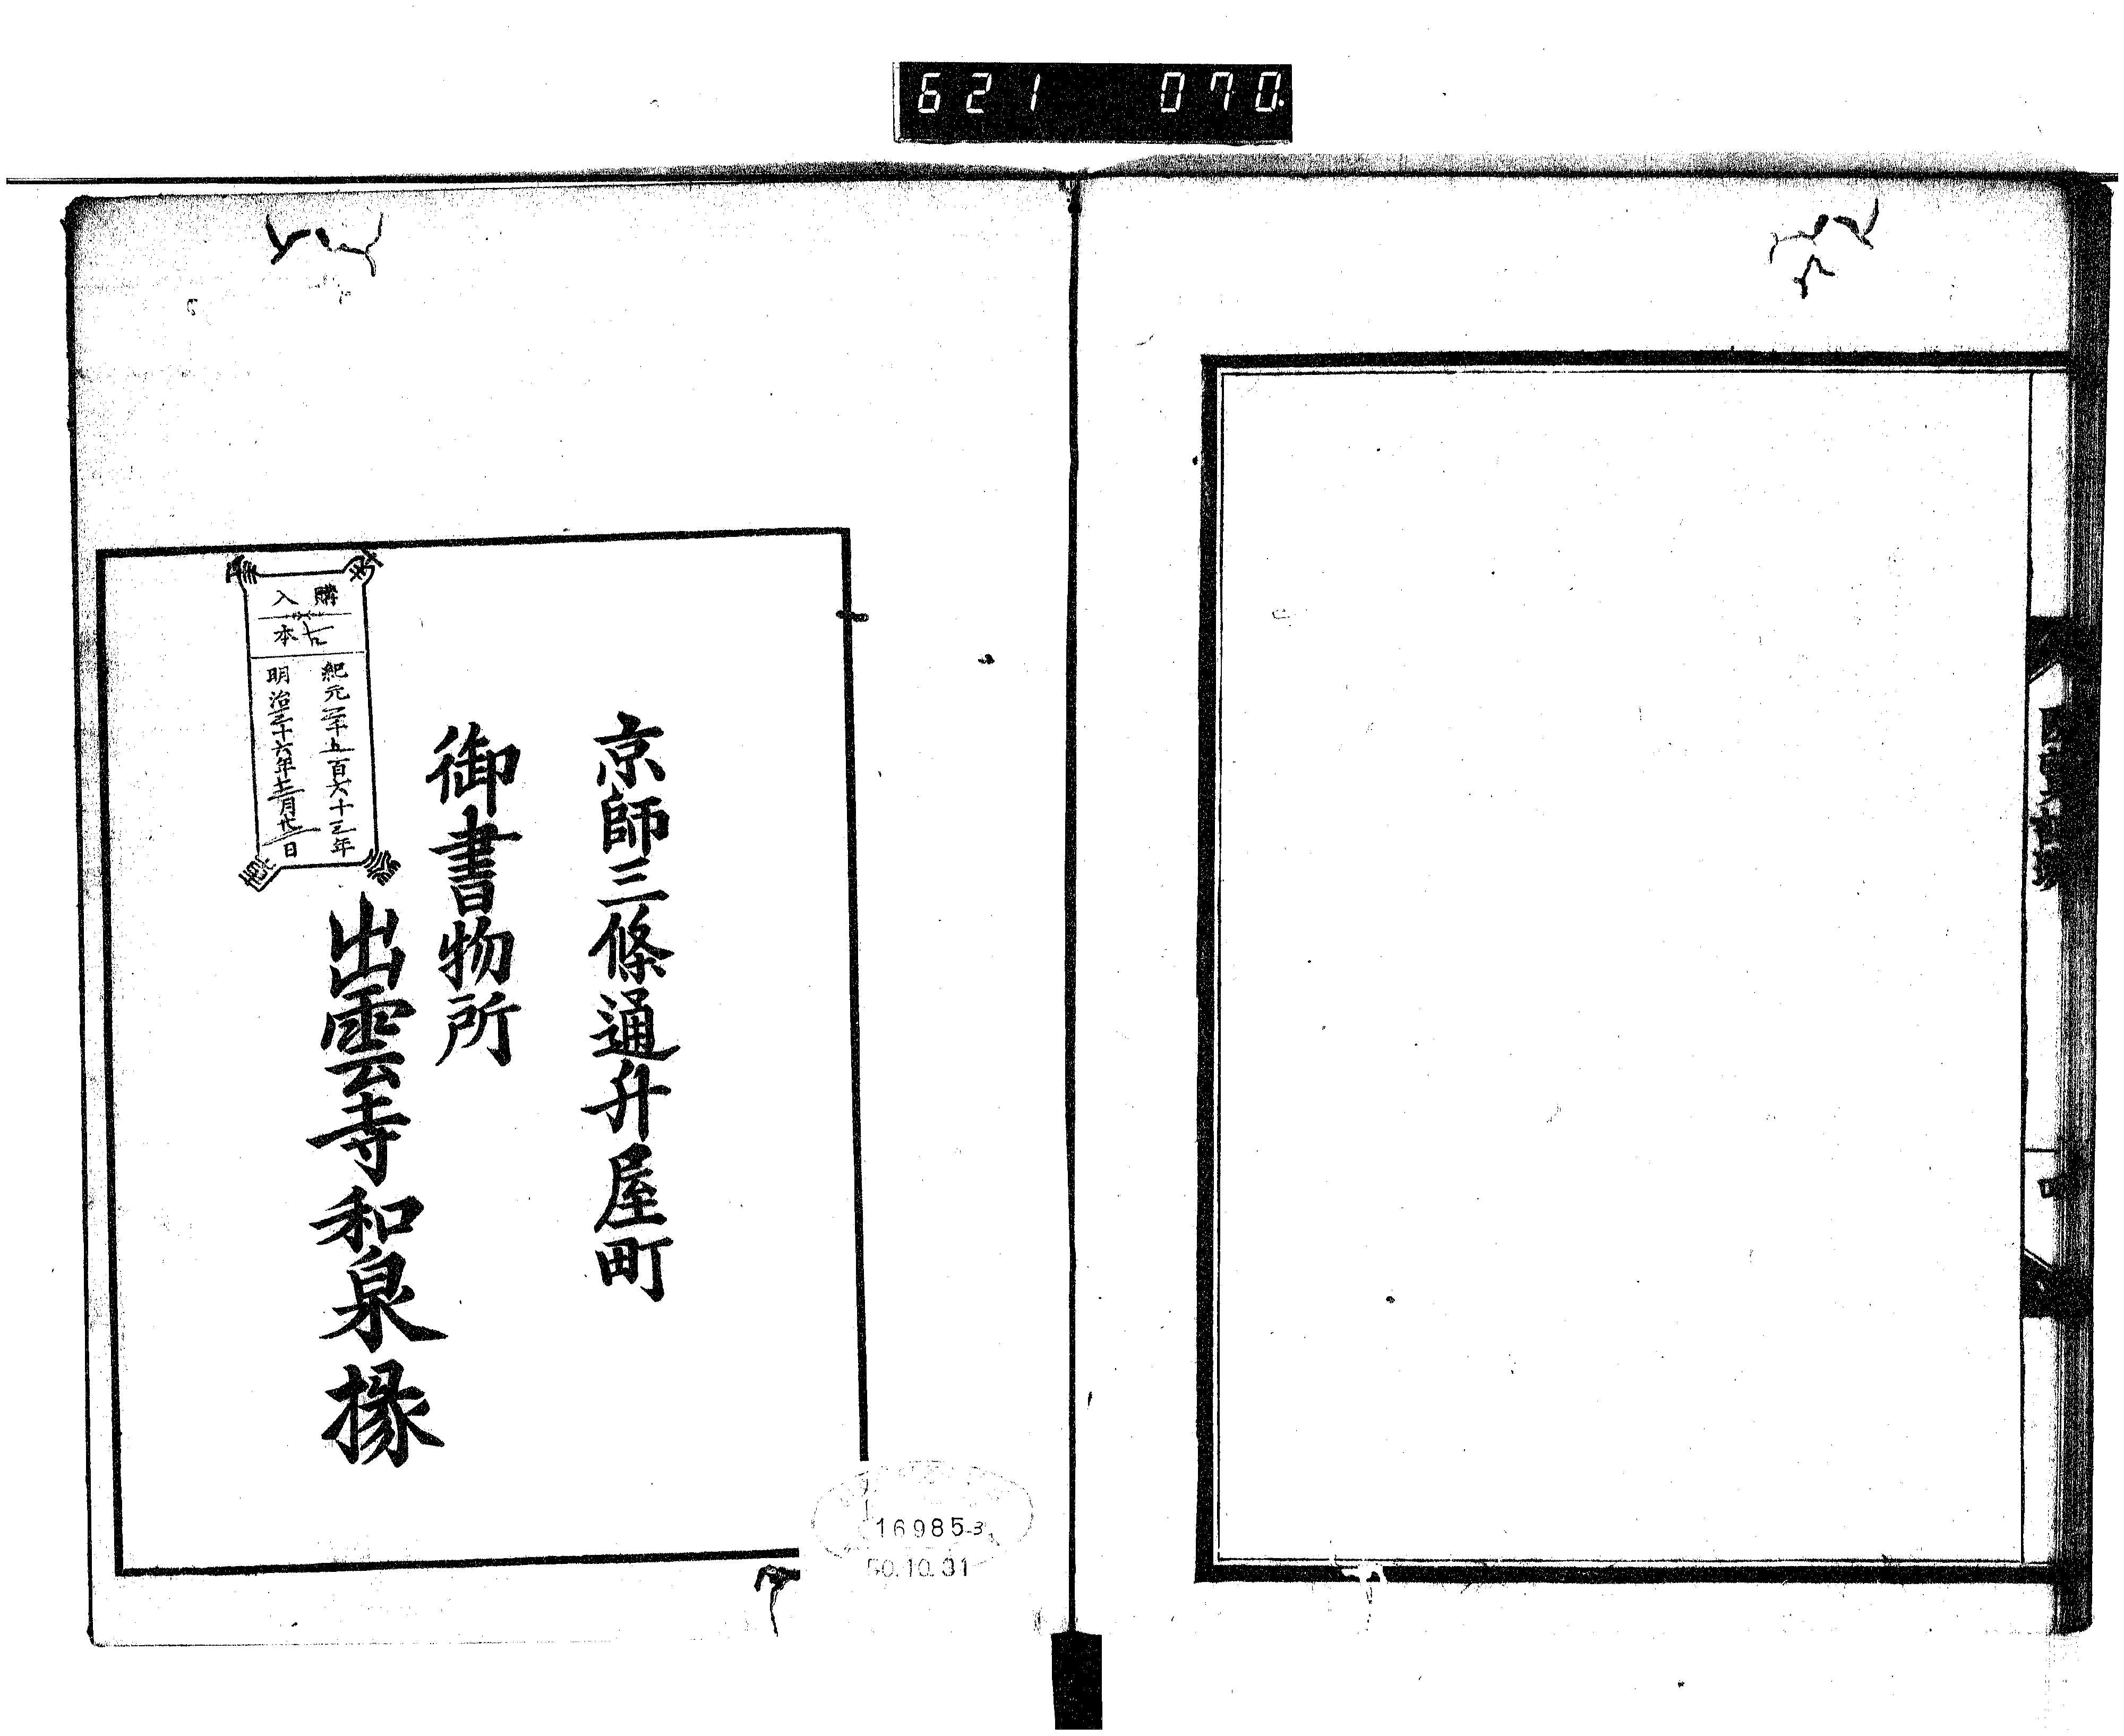 621 070
京師三條通升屋町
御書物所
出雲寺和泉掾
購入
古本
紀元二千五百六十三年
明治三十六年十二月廿二日
16985-3
50.10.31